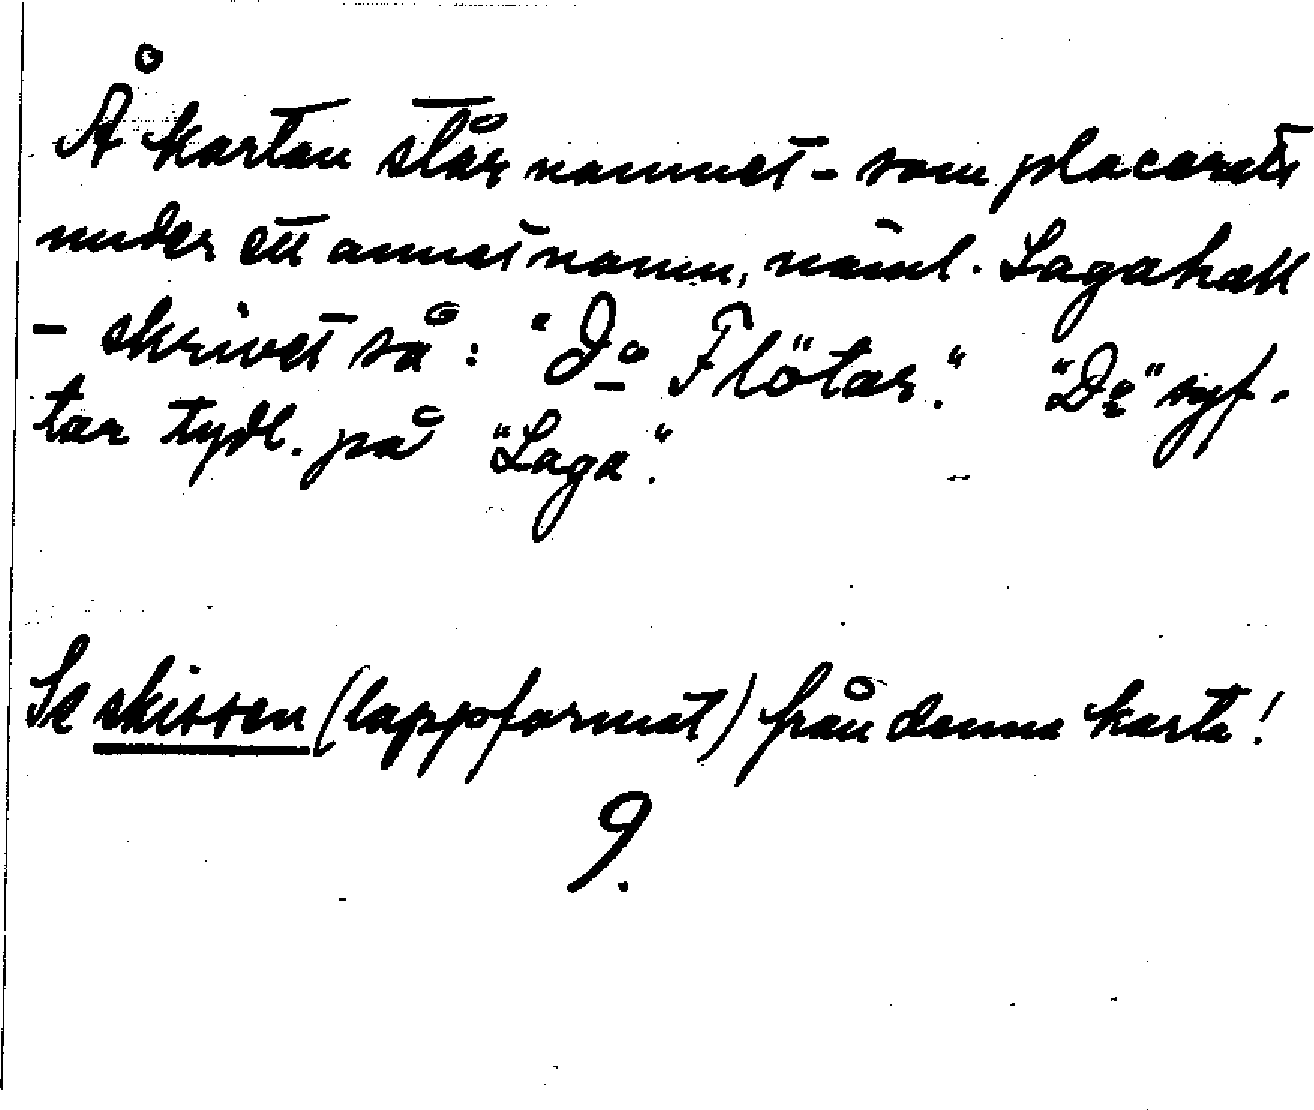 Å kartan står namnet - som placerats
under ett annat namn, näml. Lagahall
- skrivet så: "Do Flötar." "Do" syf-
tar tydl. på "Laga".
Se skissen (lappformat) från denna karta!
9.